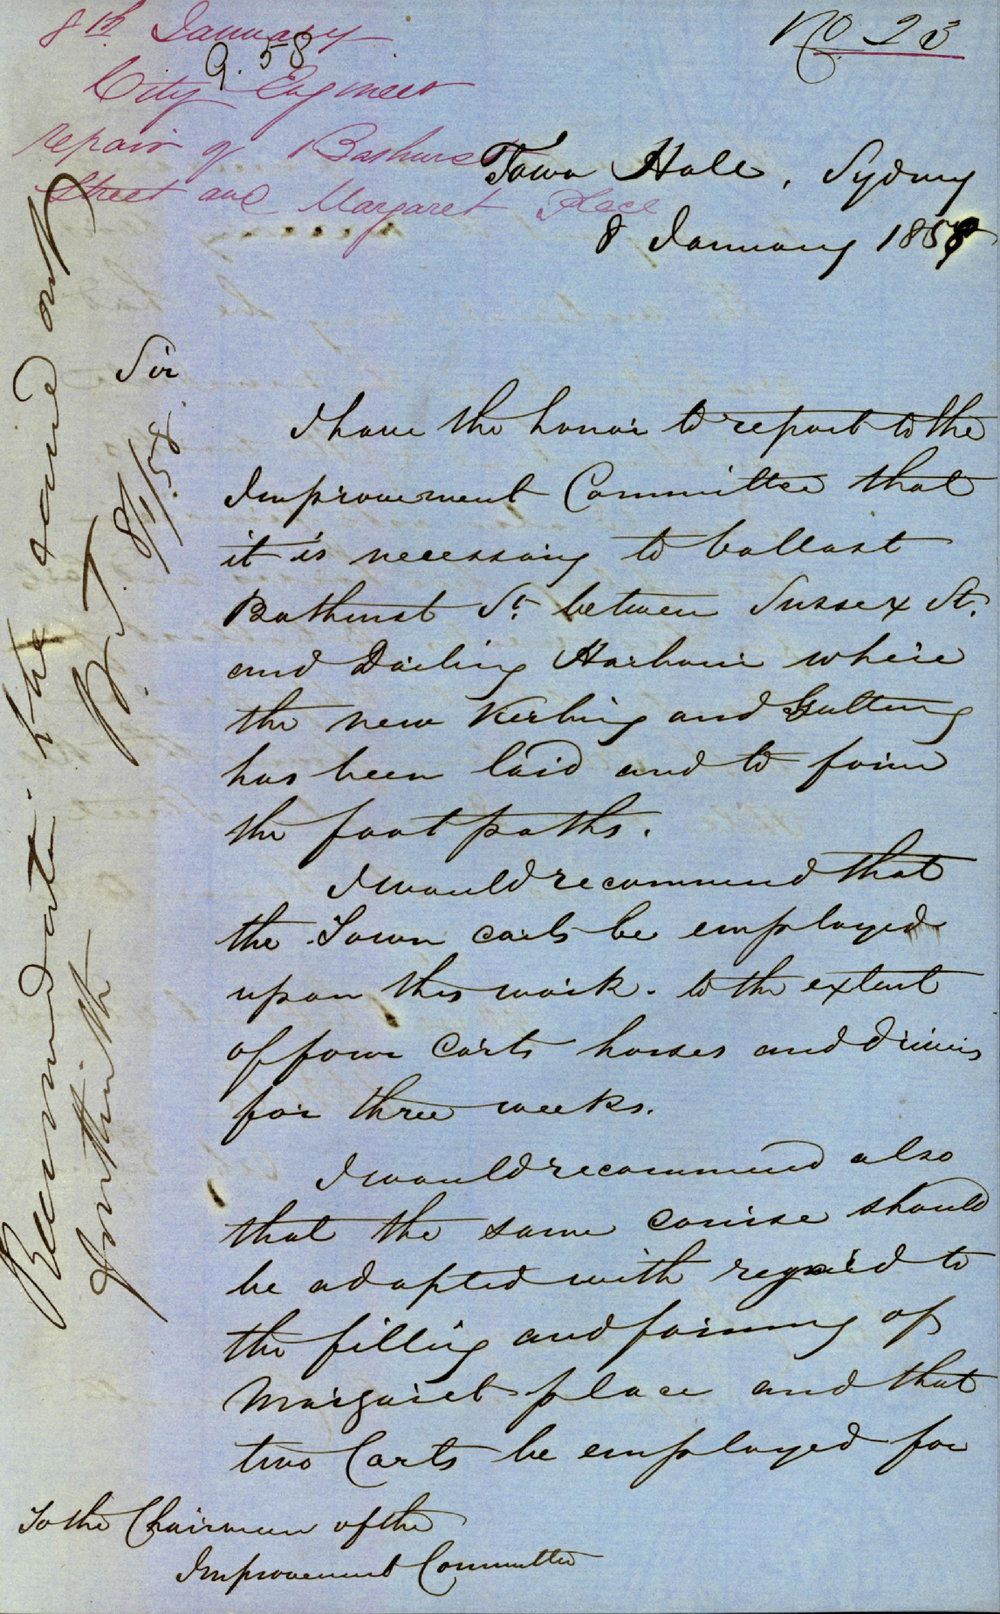 8th January
9.58
City Engineer
repair of Bathurst
Street and Margaret Place
No 23
Town Hall, Sydney
8 January 1858
Sir
I have the honor to report to the
Improvement Committee that
it is necessary to ballast
Bathurst St. between Sussex St.
and Darling Harbour where
the new Kerbing and Guttering
has been laid and to form
the foot paths.
I would recommend that
the Town carts be employed
upon this work. to the extent
of four Carts horses and drivers
for three weeks.
I would recommend also
that the same course should
be adopted with regard to
the filling and forming of
Margaret place and that
two Carts be employed for
To the Chairman of the
Improvement Committee
the same out
8/1/58